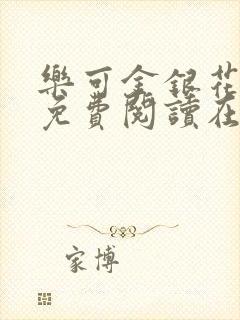 樂可金銀花
免費閱讀在
家博